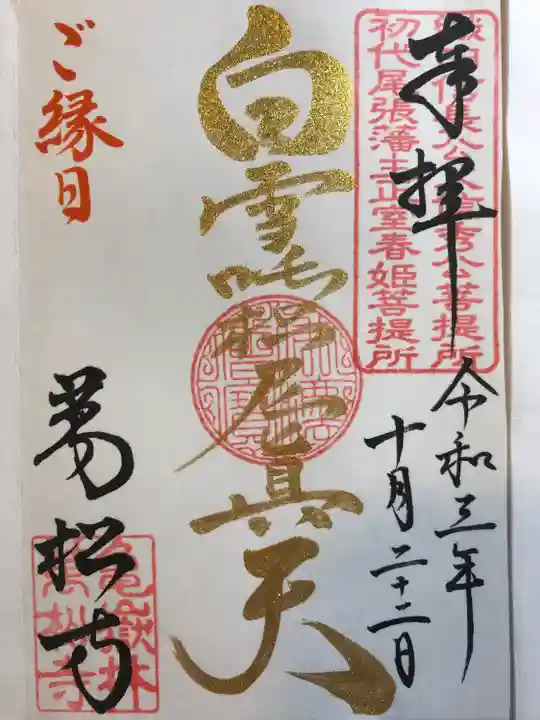 奉拝
織田信長公父信秀公菩提所
初代尾張藩主正室春姫菩提所
令和三年
十月二十二日
白雪吒枳尼真天
ご縁日
萬松寺
龜嶽林
萬松寺